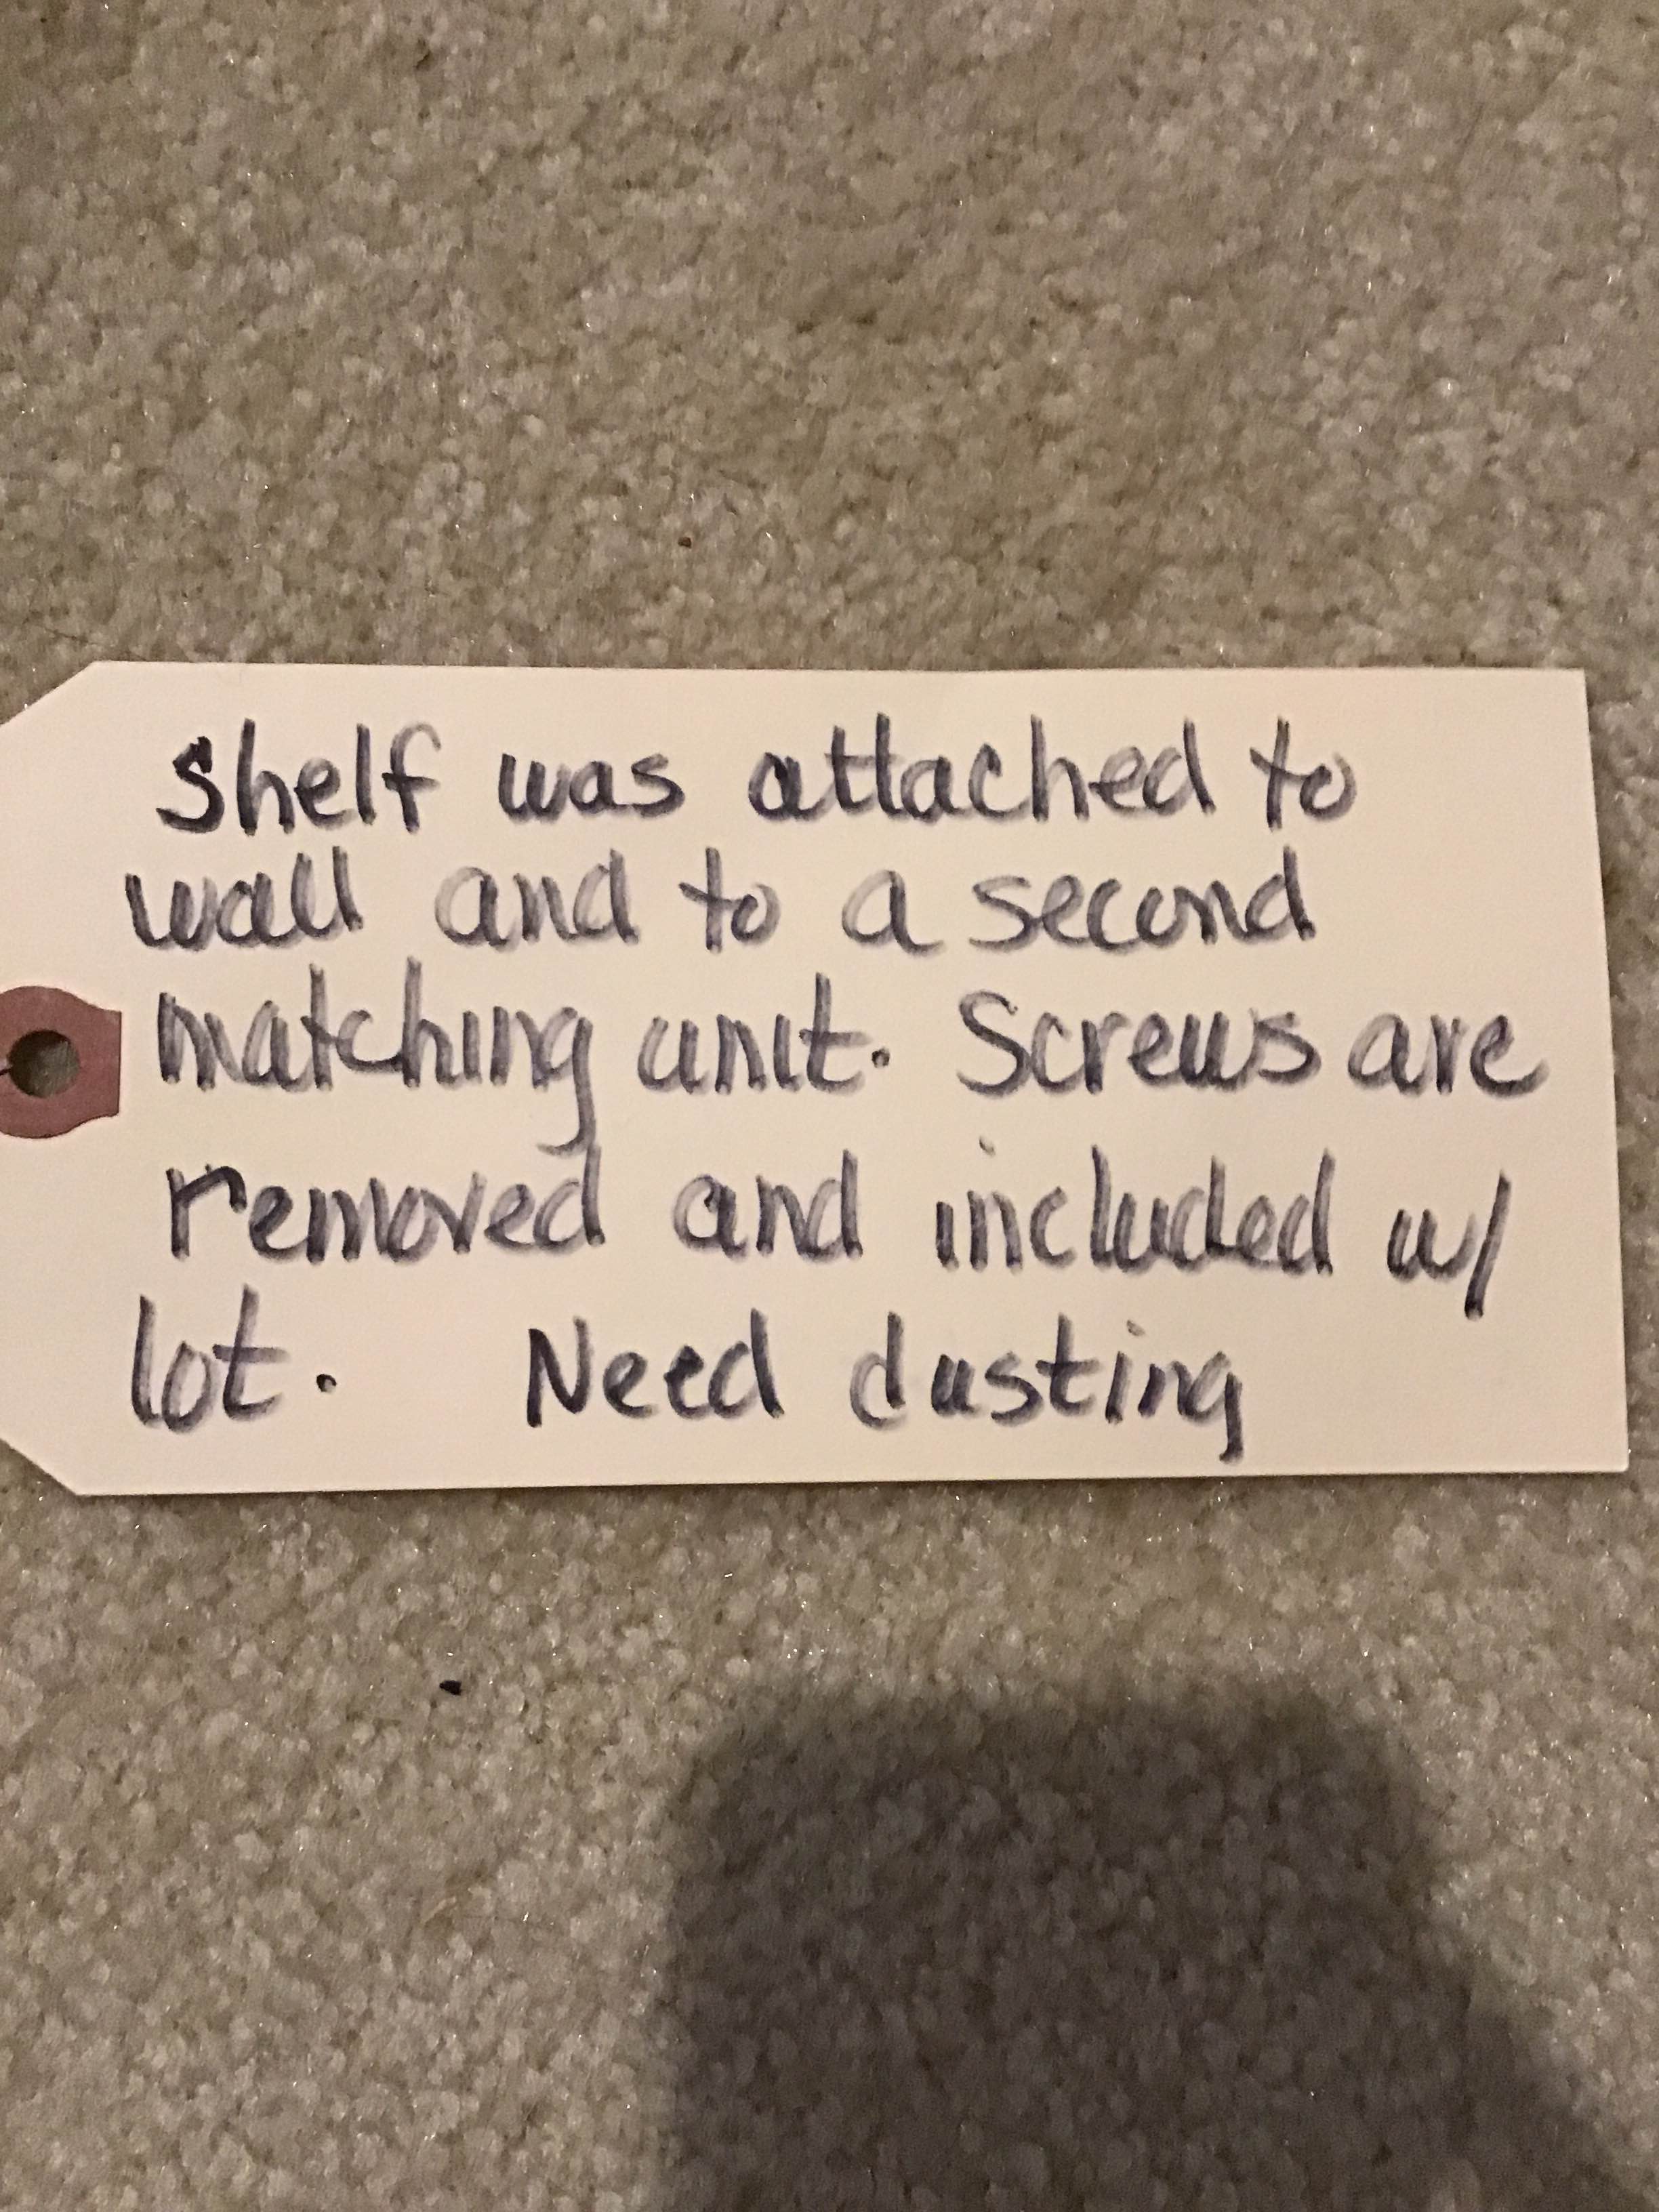 Shelf was attached to
wall and to a second
matching unit. Screws are
removed and included w/
lot. Need dusting